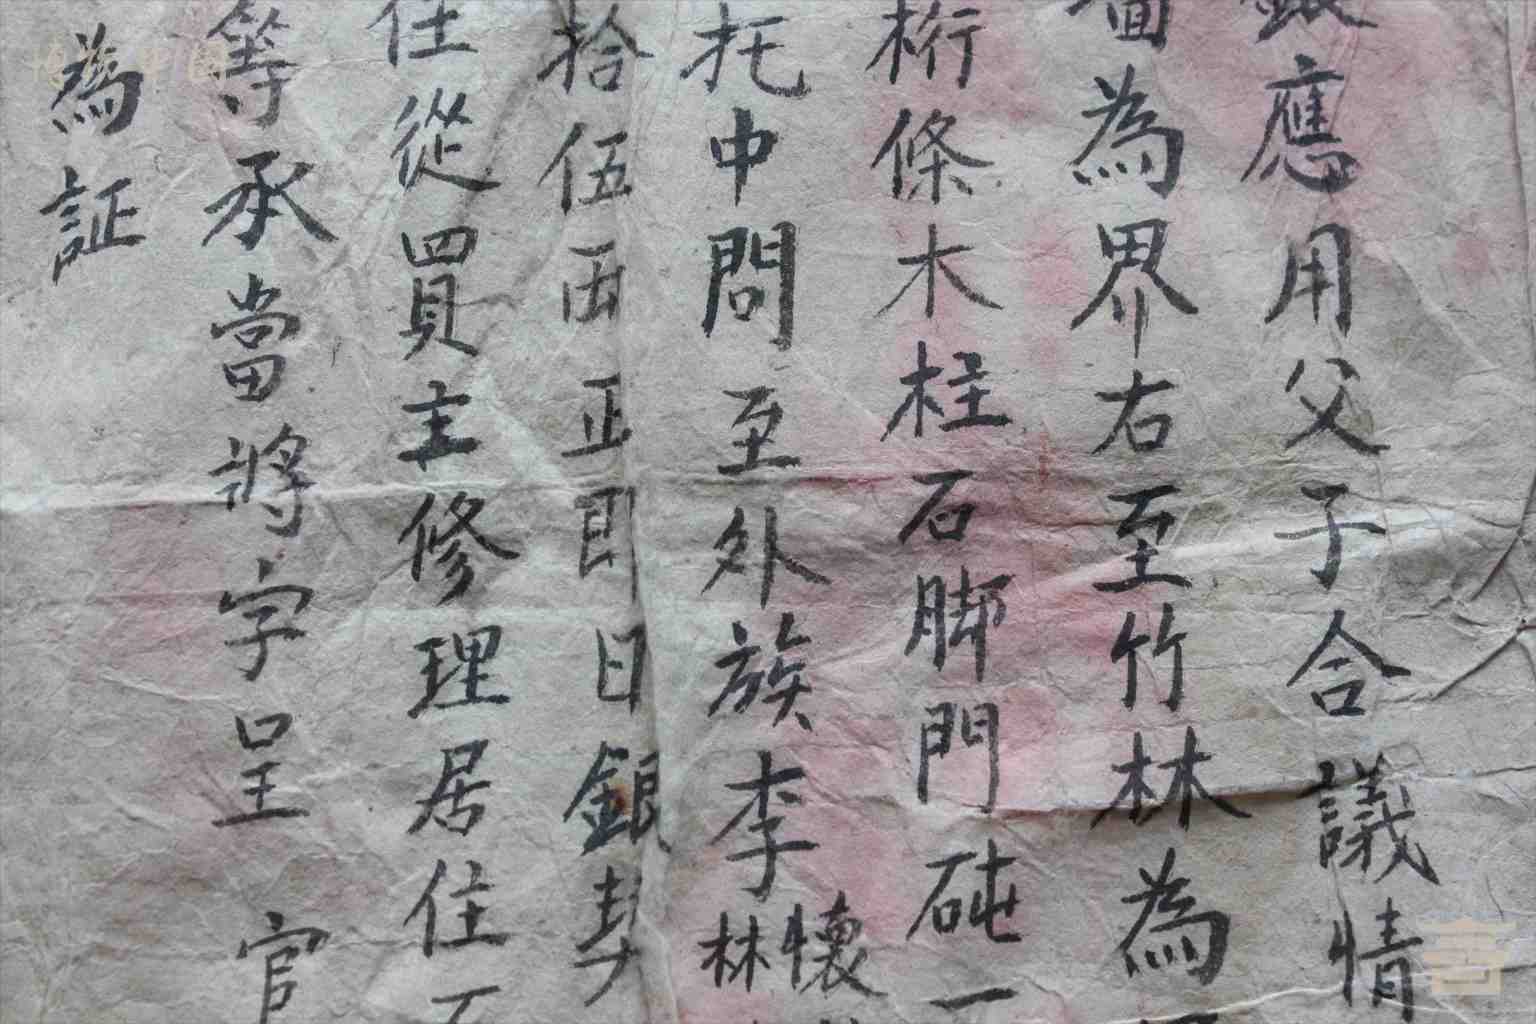 銀應用父子合議情
面為界右至竹林為
桁條木柱石脚門砘一
托中問至外族李林懷
拾伍両正即日銀契
住從買主修理居住不
等承當將字呈官
為証